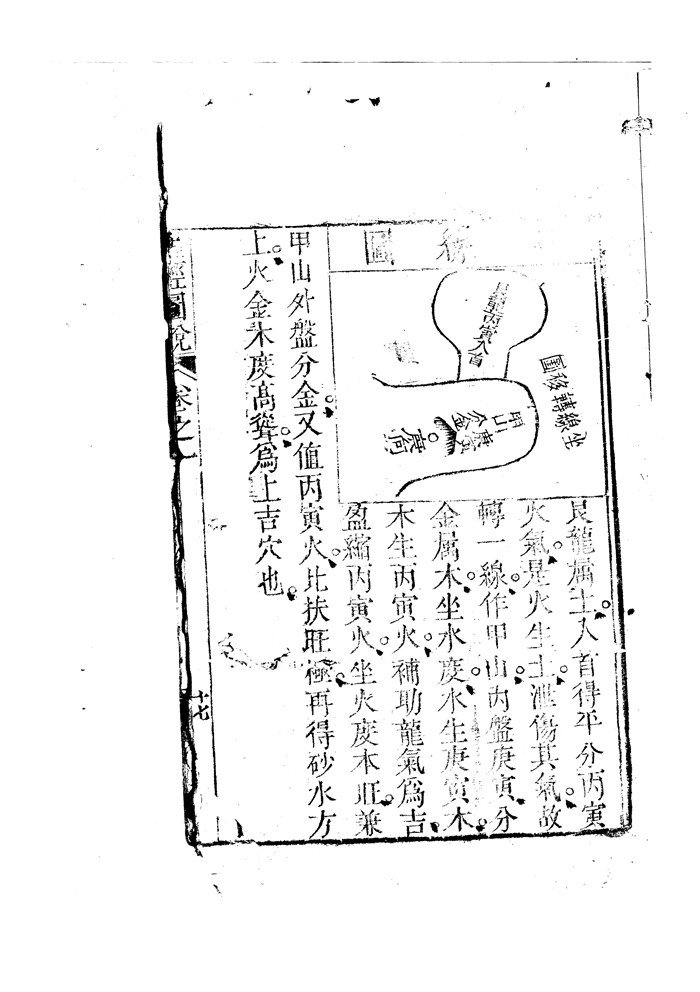 圖
坐線轉移圖
艮龍丙寅入首
甲山
庚寅
分金
艮龍屬土入首得平分丙寅
火氣是火生土泄傷其氣故
轉一線作甲山內盤庚寅分
金属木坐水度水生庚寅木
木生丙寅火補助龍氣爲吉
盈縮丙寅火坐火度本旺兼
甲山外盤分金又值丙寅火比扶旺極再得砂水方
上火金木度高聳爲上吉穴也
圖說
卷之
十七